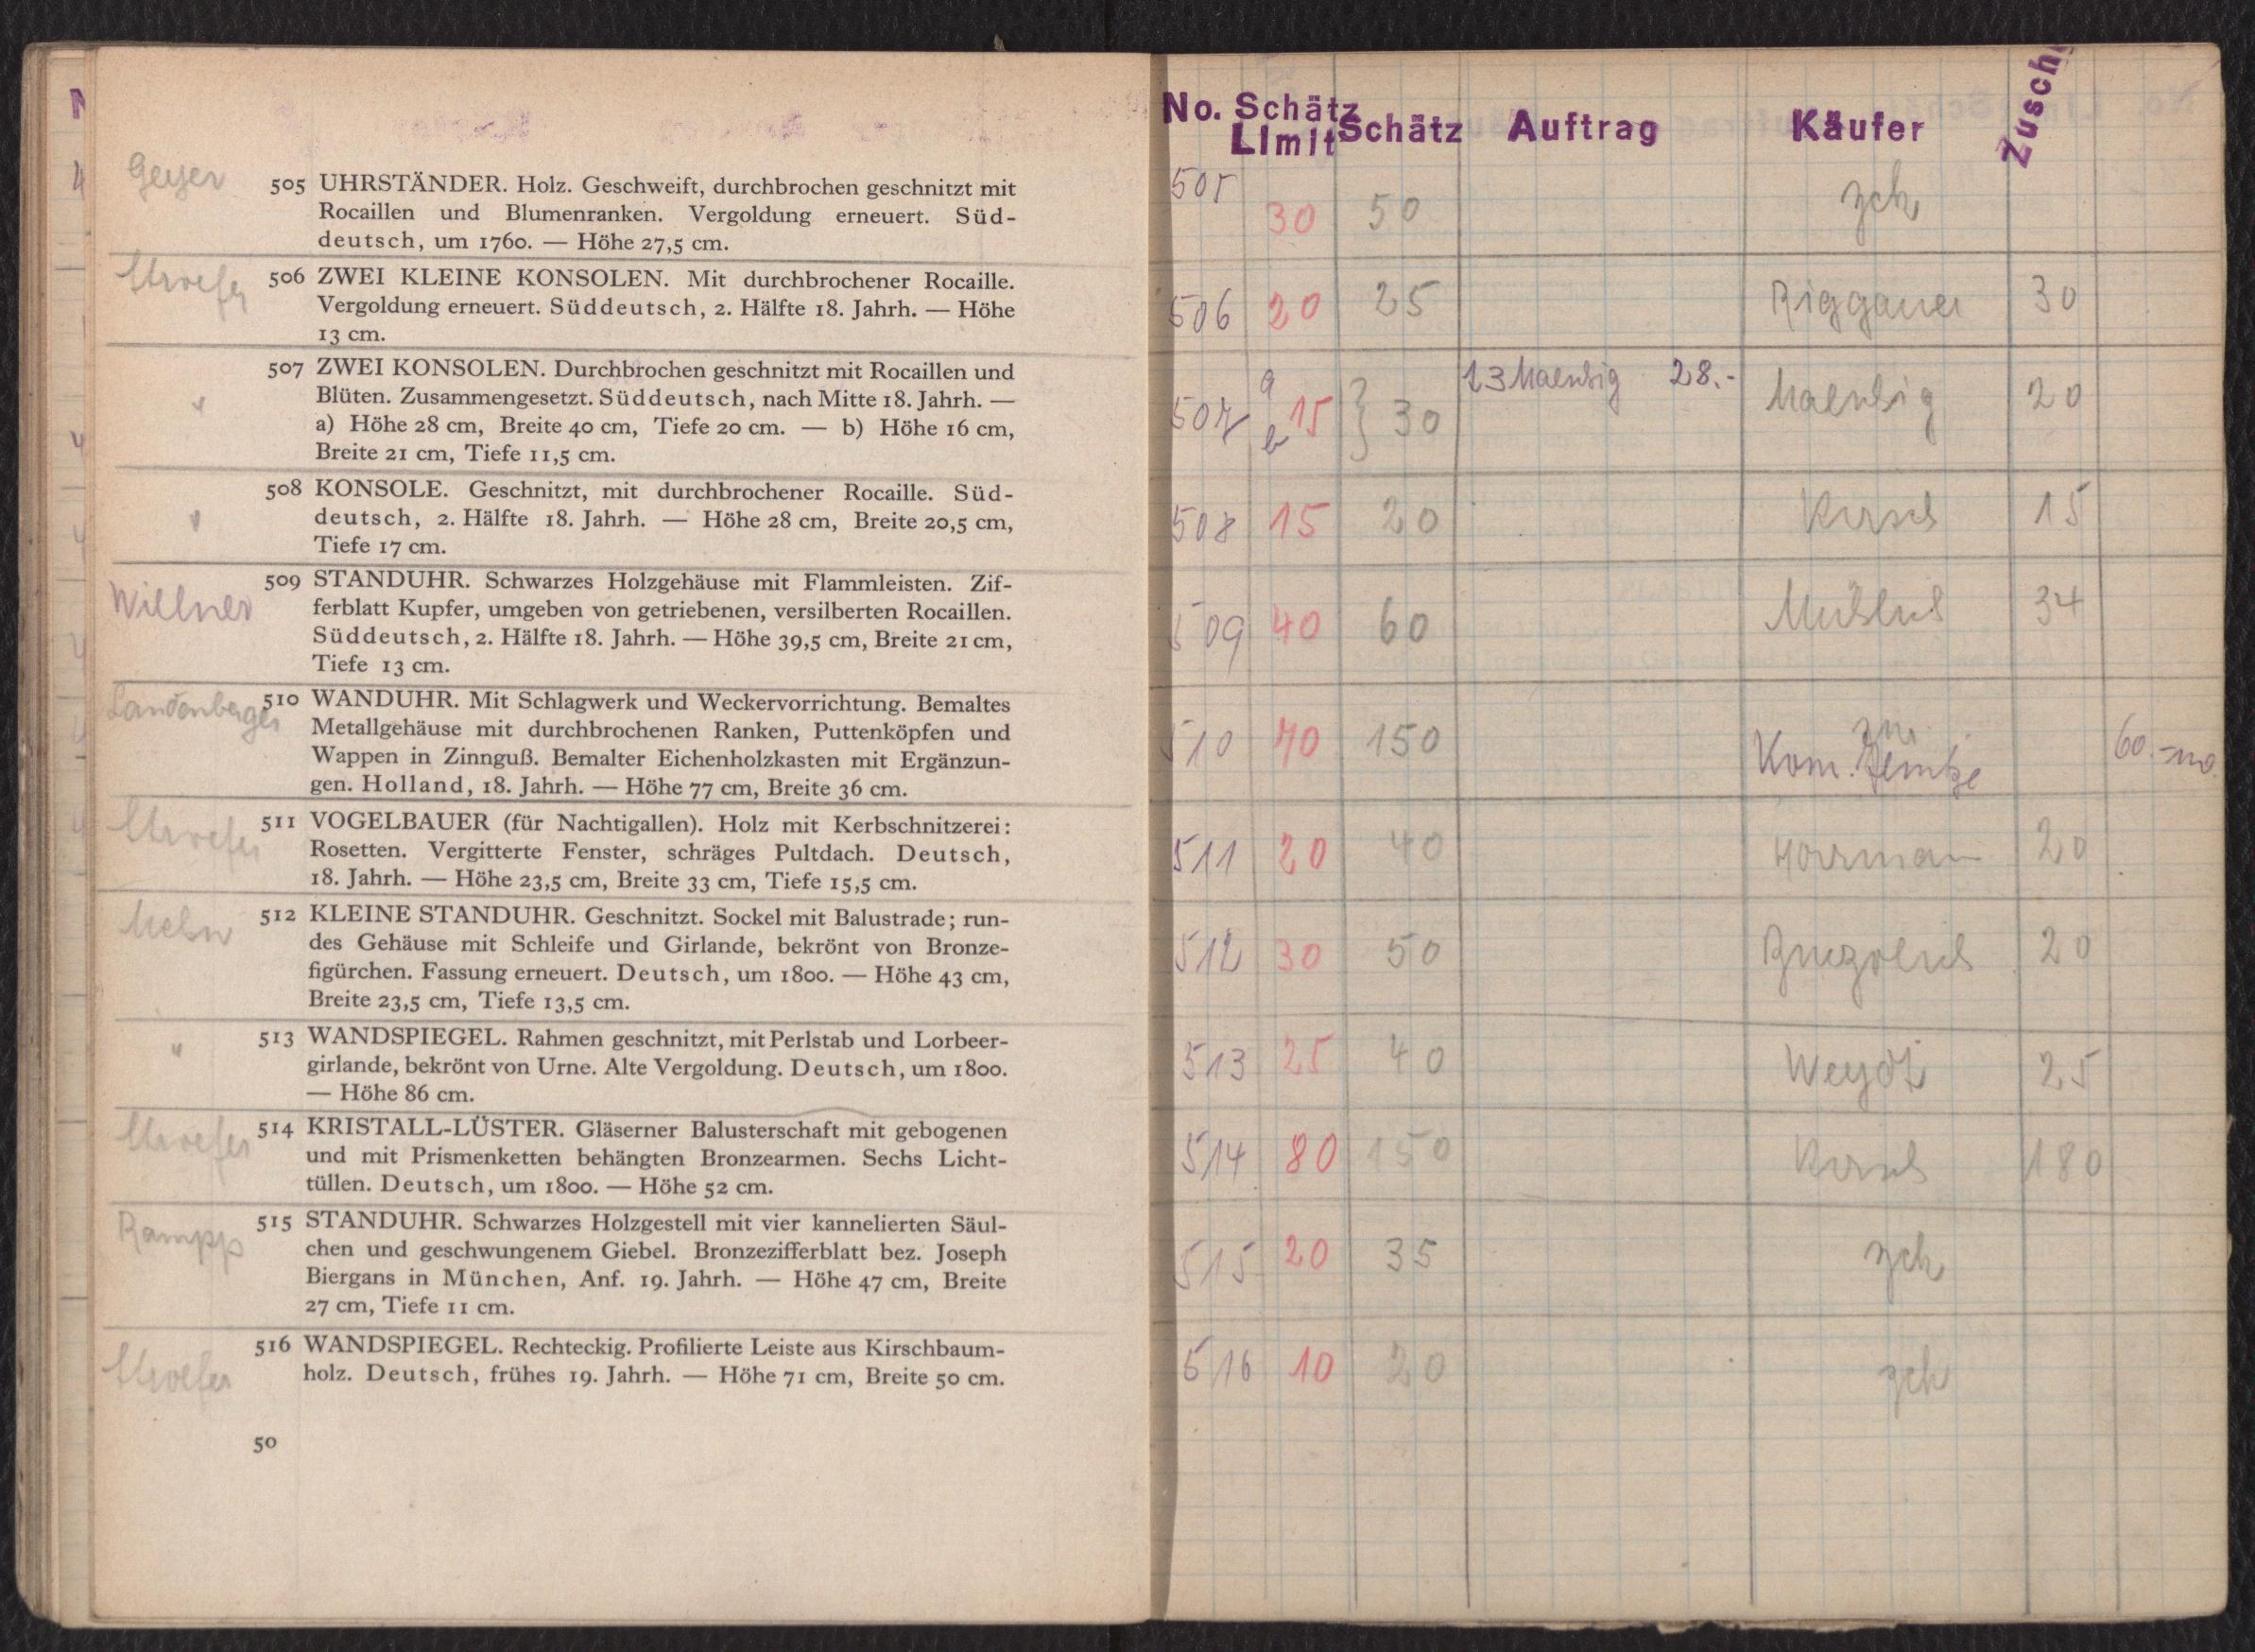 Geyer
505 UHRSTÄNDER. Holz. Geschweift, durchbrochen geschnitzt mit
Rocaillen und Blumenranken. Vergoldung erneuert. Süd-
deutsch, um 1760. — Höhe 27,5 cm.
506 ZWEI KLEINE KONSOLEN. Mit durchbrochener Rocaille.
Vergoldung erneuert. Süddeutsch, 2. Hälfte 18. Jahrh. — Höhe
13 cm.
507 ZWEI KONSOLEN. Durchbrochen geschnitzt mit Rocaillen und
Blüten. Zusammengesetzt. Süddeutsch, nach Mitte 18. Jahrh. —
a) Höhe 28 cm, Breite 40 cm, Tiefe 20 cm. — b) Höhe 16 cm,
Breite 21 cm, Tiefe 11,5 cm.
508 KONSOLE. Geschnitzt, mit durchbrochener Rocaille. Süd-
deutsch, 2. Hälfte 18. Jahrh. — Höhe 28 cm, Breite 20,5 cm,
Tiefe 17 cm.
Willner
509 STANDUHR. Schwarzes Holzgehäuse mit Flammleisten. Zif-
ferblatt Kupfer, umgeben von getriebenen, versilberten Rocaillen.
Süddeutsch, 2. Hälfte 18. Jahrh. — Höhe 39,5 cm, Breite 21 cm,
Tiefe 13 cm.
Landenberger
510 WANDUHR. Mit Schlagwerk und Weckervorrichtung. Bemaltes
Metallgehäuse mit durchbrochenen Ranken, Puttenköpfen und
Wappen in Zinnguß. Bemalter Eichenholzkasten mit Ergänzun-
gen. Holland, 18. Jahrh. — Höhe 77 cm, Breite 36 cm.
511 VOGELBAUER (für Nachtigallen). Holz mit Kerbschnitzerei:
Rosetten. Vergitterte Fenster, schräges Pultdach. Deutsch,
18. Jahrh. — Höhe 23,5 cm, Breite 33 cm, Tiefe 15,5 cm.
512 KLEINE STANDUHR. Geschnitzt. Sockel mit Balustrade; run-
des Gehäuse mit Schleife und Girlande, bekrönt von Bronze-
figürchen. Fassung erneuert. Deutsch, um 1800. — Höhe 43 cm,
Breite 23,5 cm, Tiefe 13,5 cm.
513 WANDSPIEGEL. Rahmen geschnitzt, mit Perlstab und Lorbeer-
girlande, bekrönt von Urne. Alte Vergoldung. Deutsch, um 1800.
— Höhe 86 cm.
514 KRISTALL-LÜSTER. Gläserner Balusterschaft mit gebogenen
und mit Prismenketten behängten Bronzearmen. Sechs Licht-
tüllen. Deutsch, um 1800. — Höhe 52 cm.
Rampp
515 STANDUHR. Schwarzes Holzgestell mit vier kannelierten Säul-
chen und geschwungenem Giebel. Bronzezifferblatt bez. Joseph
Biergans in München, Anf. 19. Jahrh. — Höhe 47 cm, Breite
27 cm, Tiefe 11 cm.
516 WANDSPIEGEL. Rechteckig. Profilierte Leiste aus Kirschbaum-
holz. Deutsch, frühes 19. Jahrh. — Höhe 71 cm, Breite 50 cm.
50
No. Schätz Limit Schätz Auftrag Käufer Zusch
505 30 50 zch
506 20 25 Riggauer 30
507 a b 15 } 30 28.- 20
508 15 20 15
509 40 60 34
510 70 150 Kom. 60.-
511 20 40 20
512 30 50 20
513 25 40 Weydt 25
514 80 150 180
515 20 35 zch
516 10 20 zch